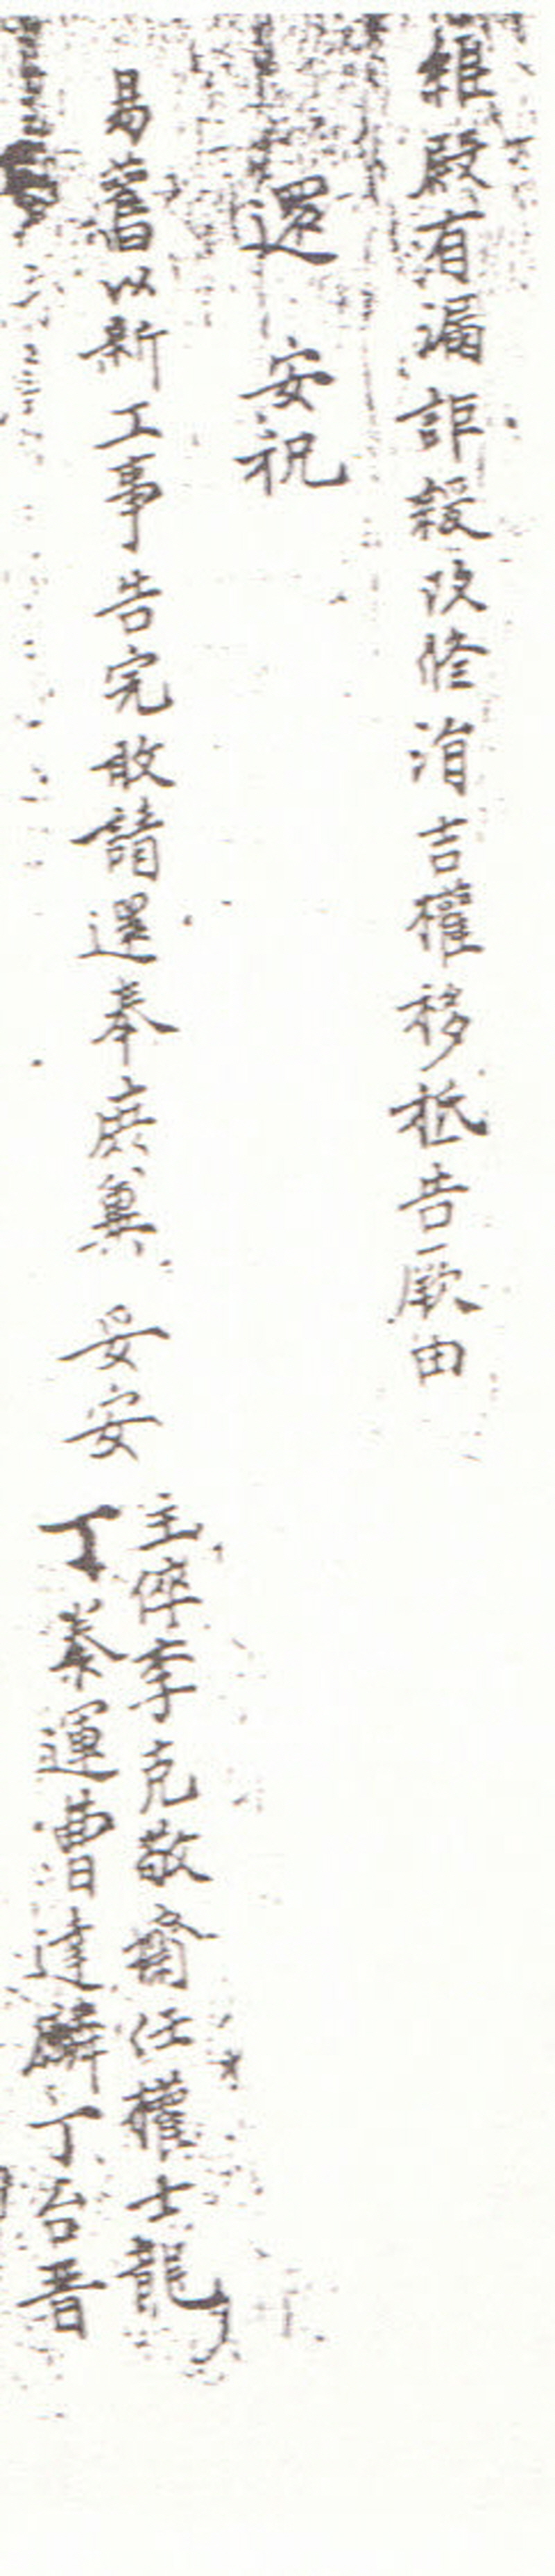 維殿有漏詎緩改修涓吉權移祗告厥由
還安祝
易舊以新工事告完敢請還奉庶冀妥安
主倅李克敬齋任權士龍
丁泰運曹達麟丁台晋